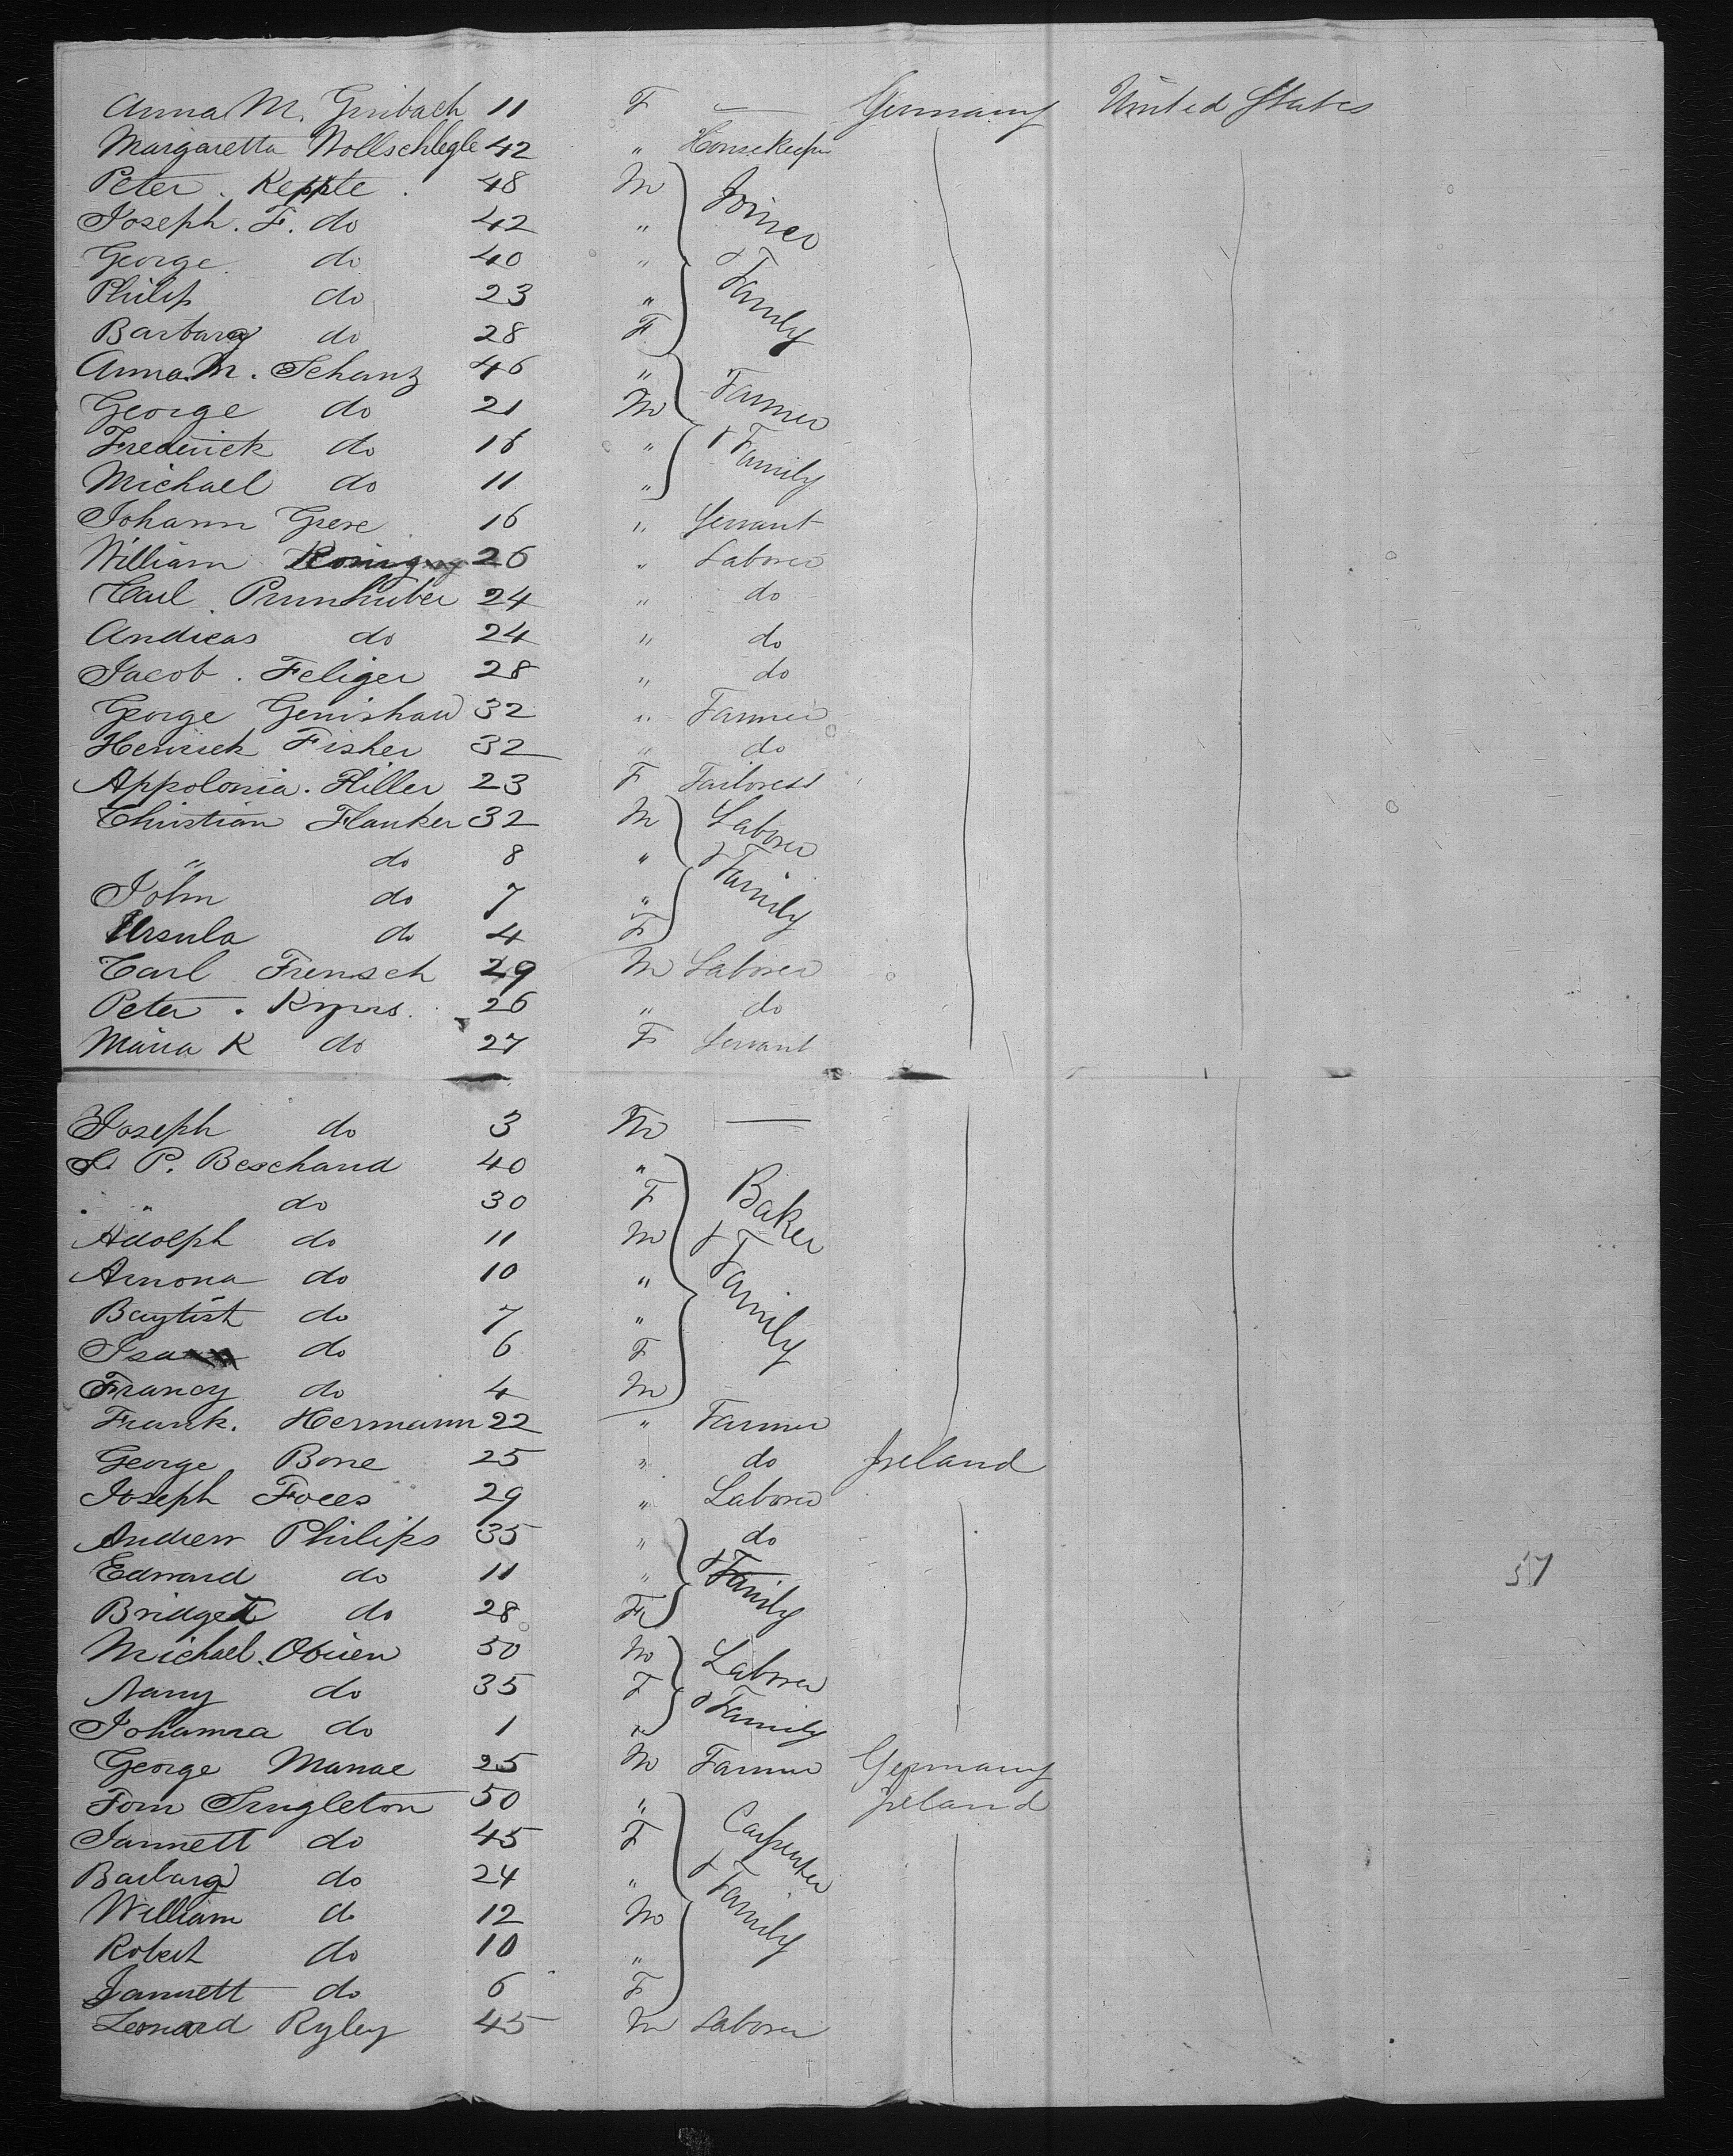 Anna M. Gimbach 11 F — Germany United States
Margaretta Wollschlegle 42 " Housekeeper
Peter . Kepple . 48 M Joiner
Joseph . F. do 42 "
George do 40 " & Family
Philip do 23 "
Barbara do 28 F
Anna M. Schanz 46 "
George do 21 M Farmer
Frederick do 16 " & Family
Michael do 11 "
Johann Grere 16 " Servant
William 26 " Laborer
Carl Prunhuber 24 " do
Andreas do 24 " do
Jacob . Feliger 28 " do
George Genishaw 32 " Farmer
Henrick Fisher 32 " do
Appolonia . Hiller 23 F Tailoress
Christian Flanker 32 M Laborer
" do 8 " & Family
John do 7 "
Ursula do 4 F
Carl Frensch 29 M Laborer
Peter . 26 " do
Maria K do 27 F Servant
Joseph do 3 M —
P. Beschand 40 "
" " do 30 F Baker
Adolph do 11 M & Family
Amona do 10 "
Baytist do 7 "
do 6 F
Francy do 4 M
Frank. Hermann 22 " Farmer
George Bone 25 " do Ireland
Joseph Foees 29 " Laborer
Andrew Philips 35 " do
Edward do 11 " & Family 57
Bridget do 28 F
Michael Obrien 50 M Laborer
Nany do 35 F & Family
Johanna do 1 "
George Manae 25 M Farmer Germany
Tom Singleton 50 " Ireland
Jannett do 45 F Carpenter
Barbara do 24 " & Family
William do 12 M
Robert do 10 "
Jannett do 6 F
Leonard Ryley 45 M Laborer